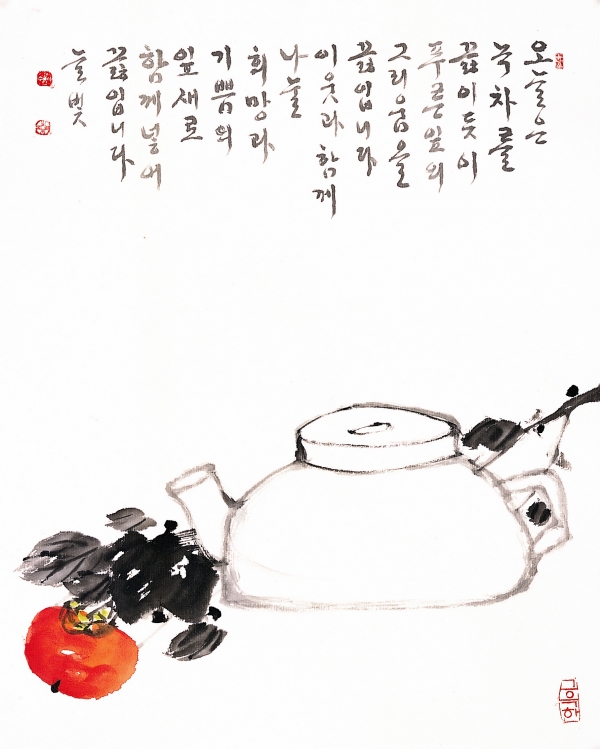 오늘은
녹차를
끓이듯이
푸른잎의
그리움을
끓입니다
이웃과 함께
나눌
희망과
기쁨의
잎새로
함께넣어
끓입니다
늘벗